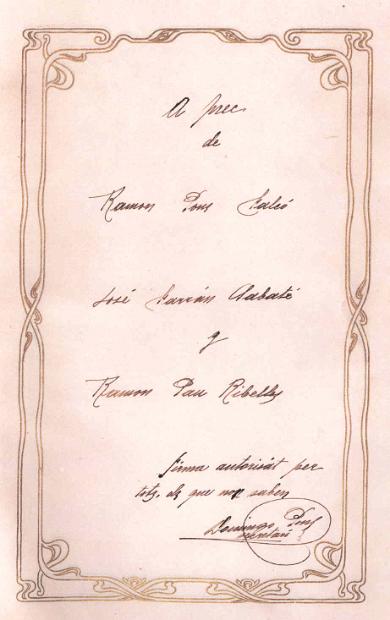 A prec
de
Ramon Pons Falcó
José Farrán Sabaté
y
Ramon Pau Ribelles
firma autorisát per
tots, els que no saben
Domingo Pons